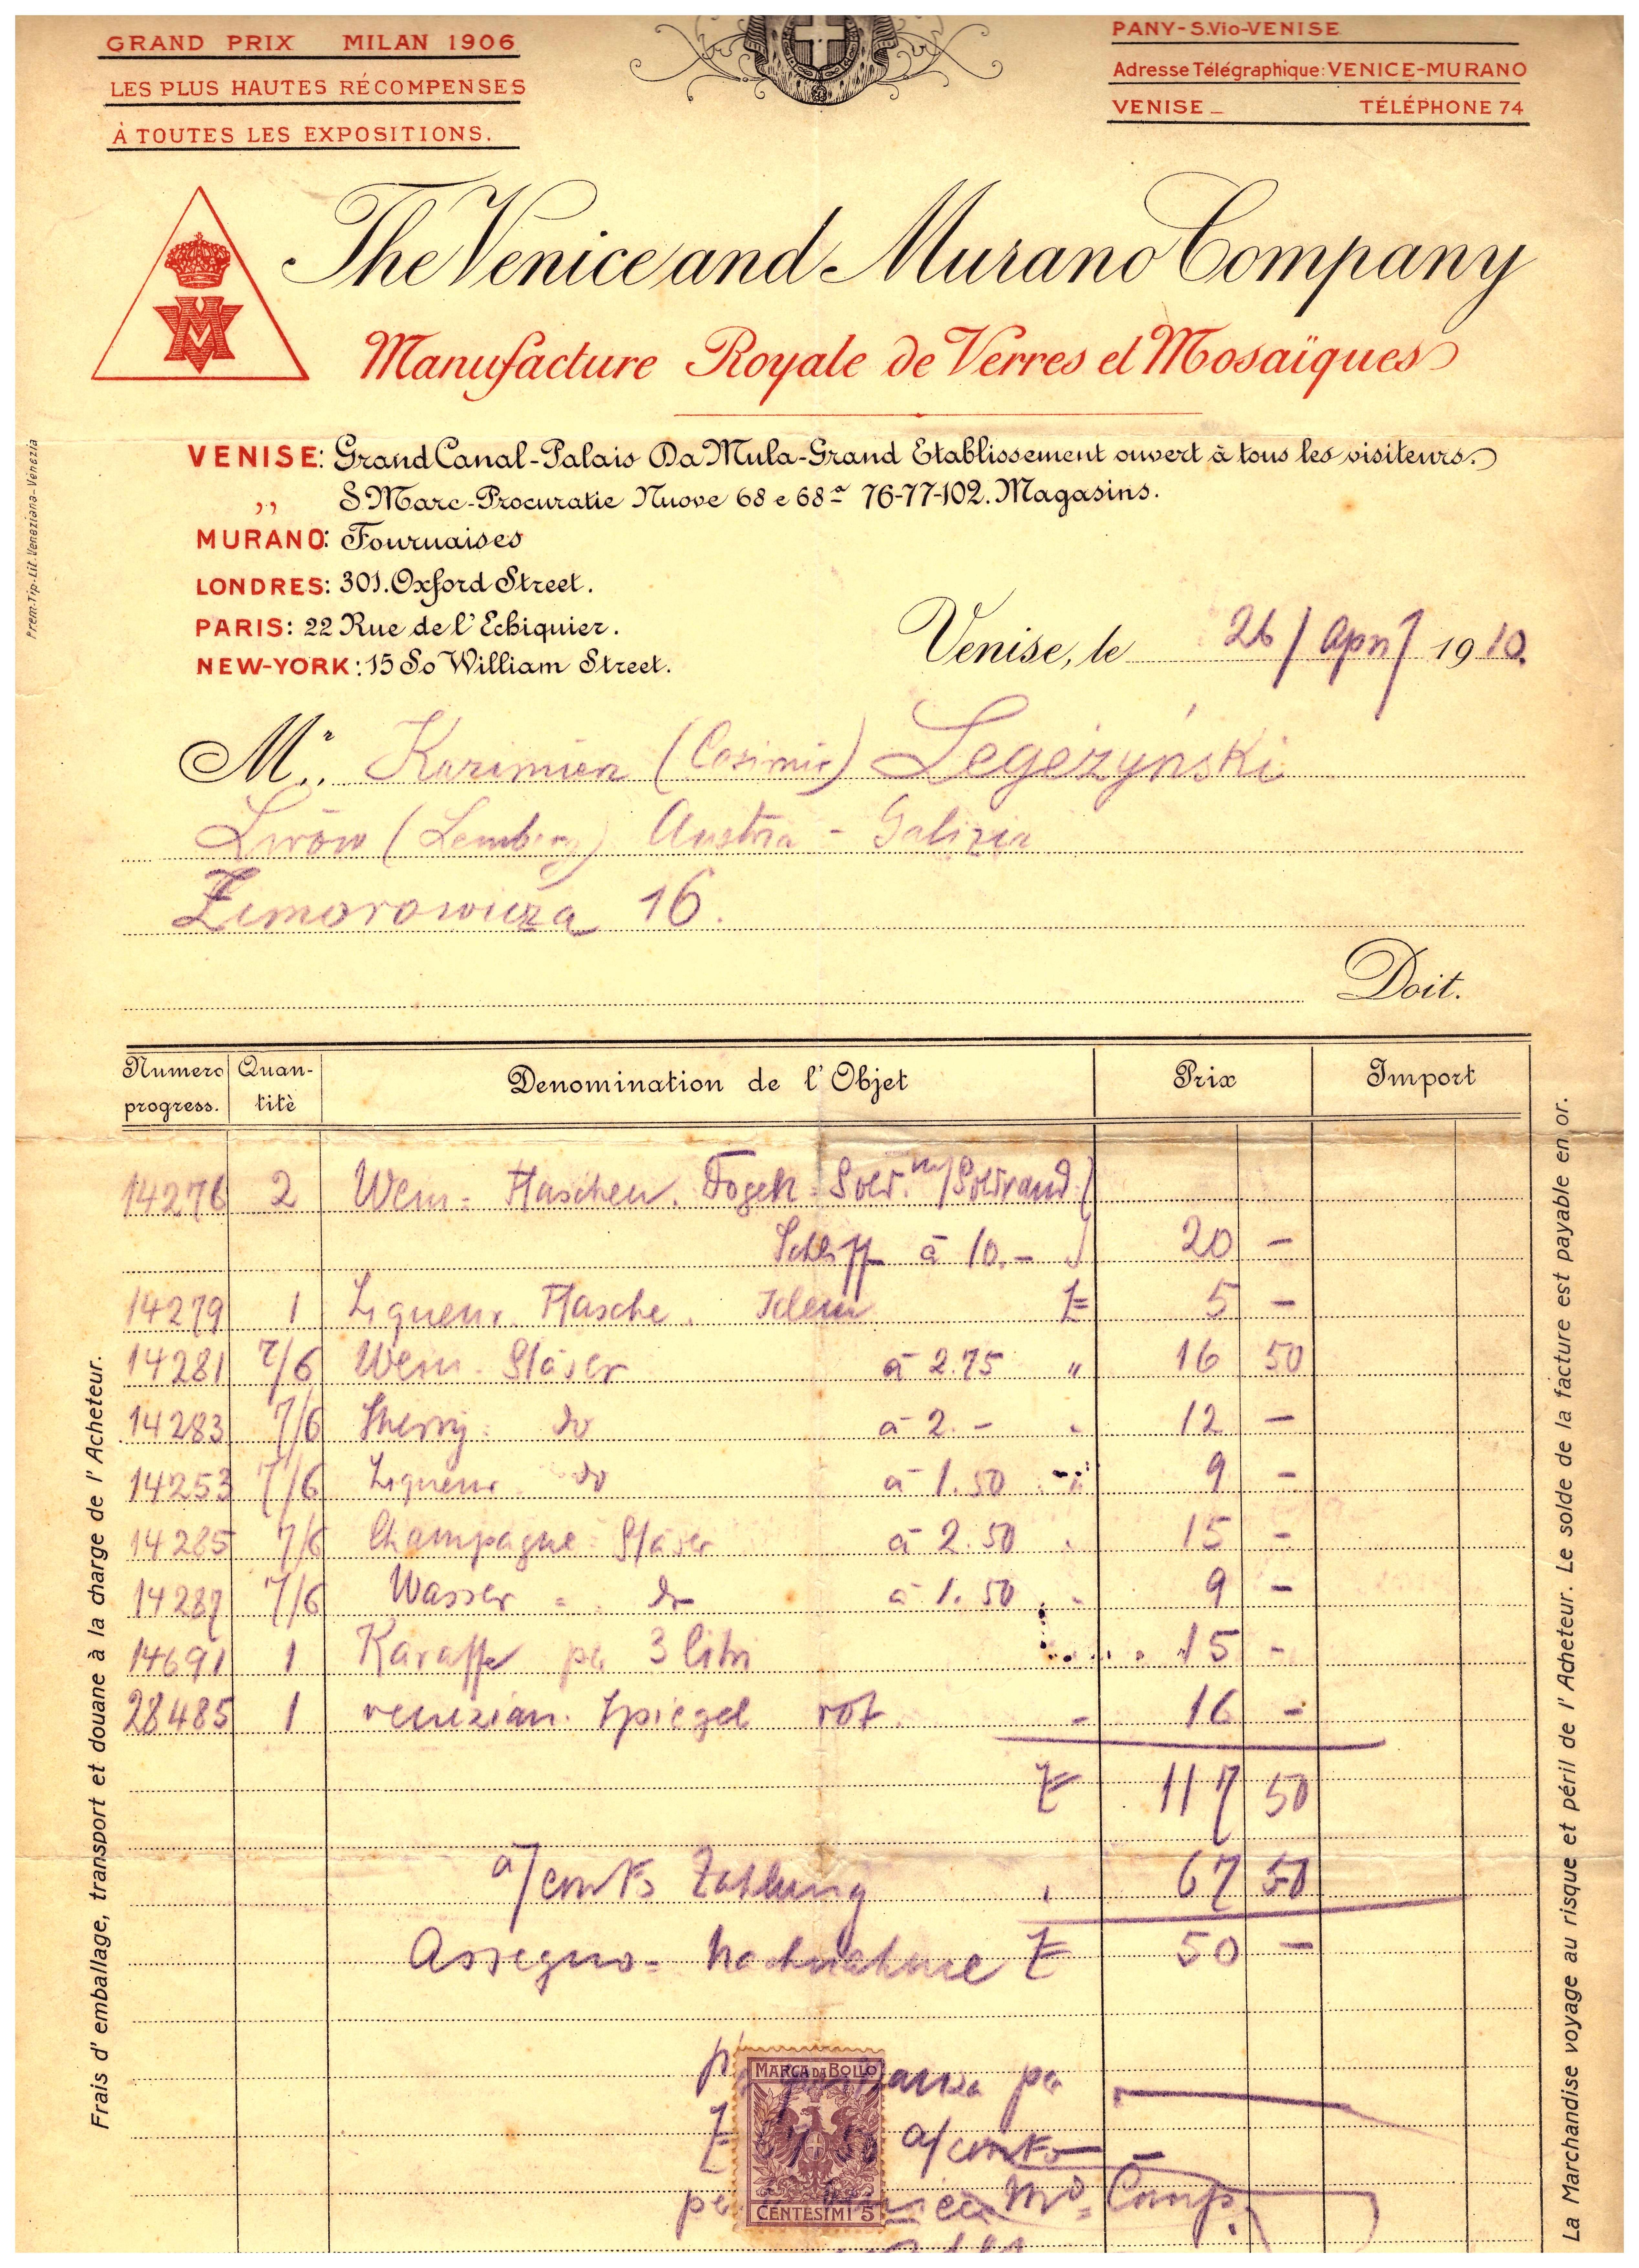 GRAND PRIX MILAN 1906
LES PLUS HAUTES RÉCOMPENSES
À TOUTES LES EXPOSITIONS.
PANY-S.Vio-VENISE
Adresse Télégraphique: VENICE-MURANO
VENISE _ TÉLÉPHONE 74
The Venice and Murano Company
Manufacture Royale de Verres et Mosaïques
VENISE: Grand Canal-Palais Da Mula-Grand Etablissement ouvert à tous les visiteurs.
,, S. Marc-Procuratie Nuove 68 e 68a 76-77-102. Magasins.
MURANO: Fournaises
LONDRES: 301. Oxford Street.
PARIS: 22 Rue de l'Echiquier.
NEW-YORK: 15 So William Street.
Prem. Tip-Lit. Veneziana-Venezia
Venise, le 26/April 1910.
Mr. Kazimierz (Casimir) Legeżyński
Lwów (Lemberg) Austria - Galizia
Zimorowicza 16.
Doit.
Numero progress. Quantitè Denomination de l'Objet Prix Import
14276 2 Wein-Flaschen. Gold. m/Goldrand
Schliff à 10.- 20 -
14279 1 Liqueur. Flasche. Idem £ 5 -
14281 7/6 Wein-Gläser à 2.75 " 16 50
14283 7/6 Sherry do à 2.- 12 -
14253 7/6 Liqueur do à 1.50 " 9 -
14285 7/6 Champagne-Gläser à 2.50 15 -
14287 7/6 Wasser do à 1.50 9 -
14691 1 Karaffe per 3 litri 15 -
28485 1 venezian. Spiegel rot. - 16 -
£ 117 50
a/conto Zahlung 67 50
Assegno-Nachnahme £ 50 -
per
MARCA DA BOLLO
a/conto
CENTESIMI 5
Comp.
Frais d'emballage, transport et douane à la charge de l'Acheteur.
La Marchandise voyage au risque et péril de l'Acheteur. Le solde de la facture est payable en or.